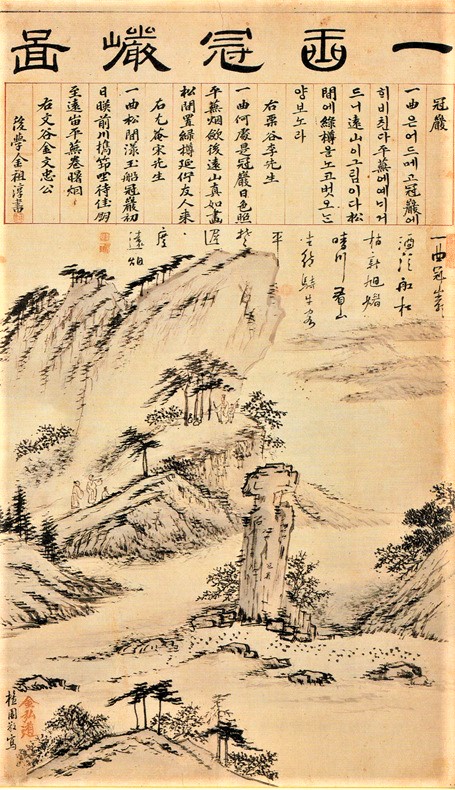 一曲冠巖圖
冠巖
一曲은어드메고冠巖에
희비친다平蕪에ᄂᆡ거
드니遠山이그림이다松
間에綠樽을노코벗오ᄂᆞᆫ
양보노라
右栗谷李先生
一曲何處是冠巖日色照
平蕪烟斂後遠山真如畵
松間置綠樽延佇友人來
右尤菴宋先生
一曲松間漾玉船冠巖初
日暎前川携筇坐待佳朋
至遠岫平蕪卷曙烟
右文谷金文忠公
後學金祖淳書
一曲冠巖
晴川看山
騎牛客
遲
度
遠烟
冠巖
金弘道
檀園 寫